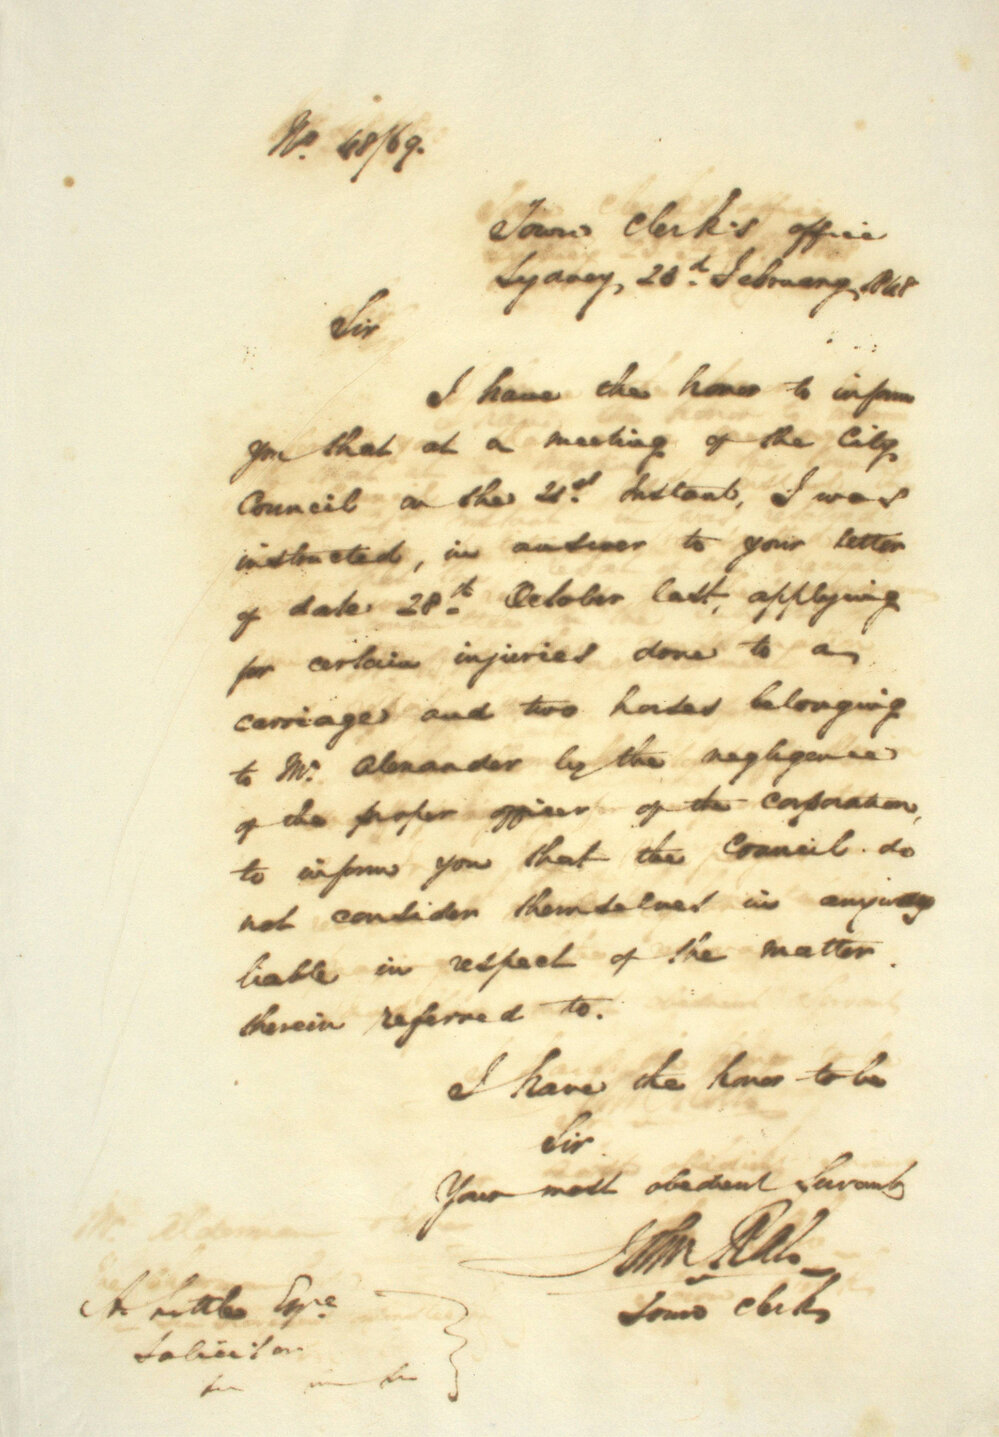 No. 48/69.
Town Clerk's office
Sydney, 28th February, 1848
Sir
I have the honor to inform
you that at a meeting of the City
Council on the 21st Instant, I was
instructed, in answer to your letter
of date 28th October last, applying
for certain injuries done to a
carriage and two horses belonging
to Mr. Alexander by the negligence
of the proper officer of the corporation,
to inform you that the Council do
not consider themselves in anyway
liable in respect of the matter
therein referred to.
I have the honor to be
Sir
Your most obedient Servant
John Rae
Town Clerk
Little Esqre
Solicitor